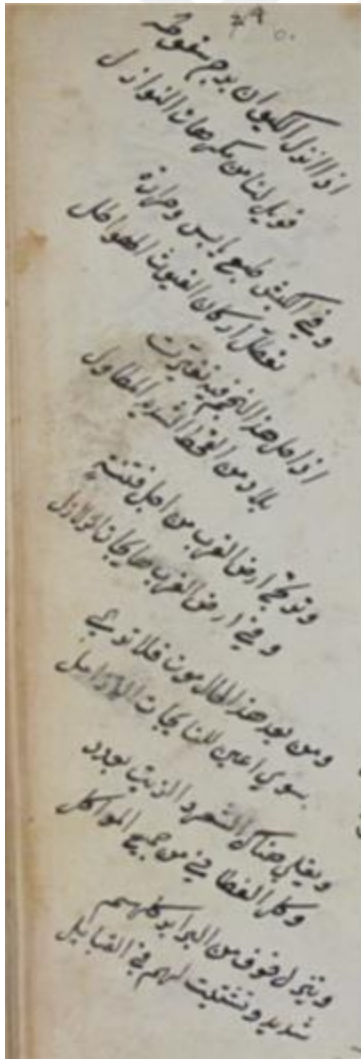 اذا نزل الكيوان برج سقوطه
فويل لنا من مكرهات النوازل
وفي الكبش طبع يابس وحرارة
تعطل اركان الغيوث الهواطل
اذا حل هذا النجم فيه تغيرت
بلاد من القحط الشديد المطاول
وتوكح ارض الغرب من اجل فتنة
وفي ارض الغرب هايجات
ومن بعد هذا الحال موت فلا ترى
سوى اعين للنايحات الارامل
ويغلي هناك الشهد والزيت بعدد
وكل الغطا في من جميع المواكل
وينزل خوف من البرابر كلهم
شديد وتشتيت لهم في القبايل